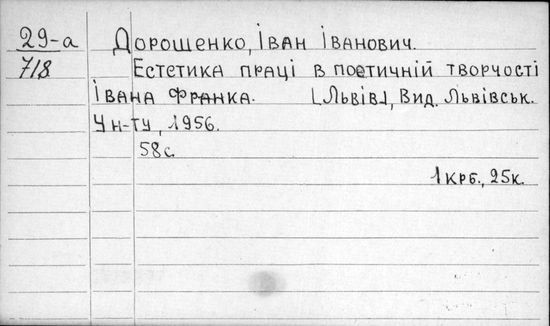 29-а
718
Дорошенко, Іван Іванович.
Естетика праці в поетичній творчості
Івана Франка. [Львів], Вид. Львівськ.
Ун-ту, 1956.
58с.
1 крб., 25к.